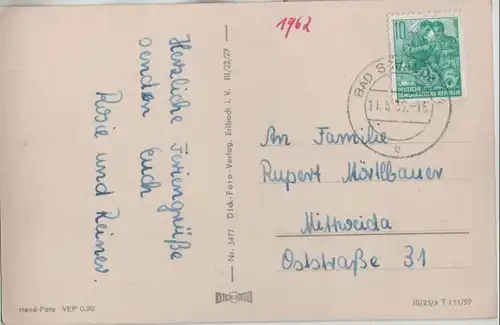 1962
Herzliche Feriengrüße
senden Euch
Rosie und Reiner.
Nr. 3477 Dick-Foto-Verlag, Erlbach i. V. III/23/27
10
DEUTSCHE
DEMOKRATISCHE REPUBLIK
BAD
An Familie
Rupert Mörtlbauer
Mittweida
Oststraße 31
Hand-Foto VEP 0,20
III/23/3 T 111/59